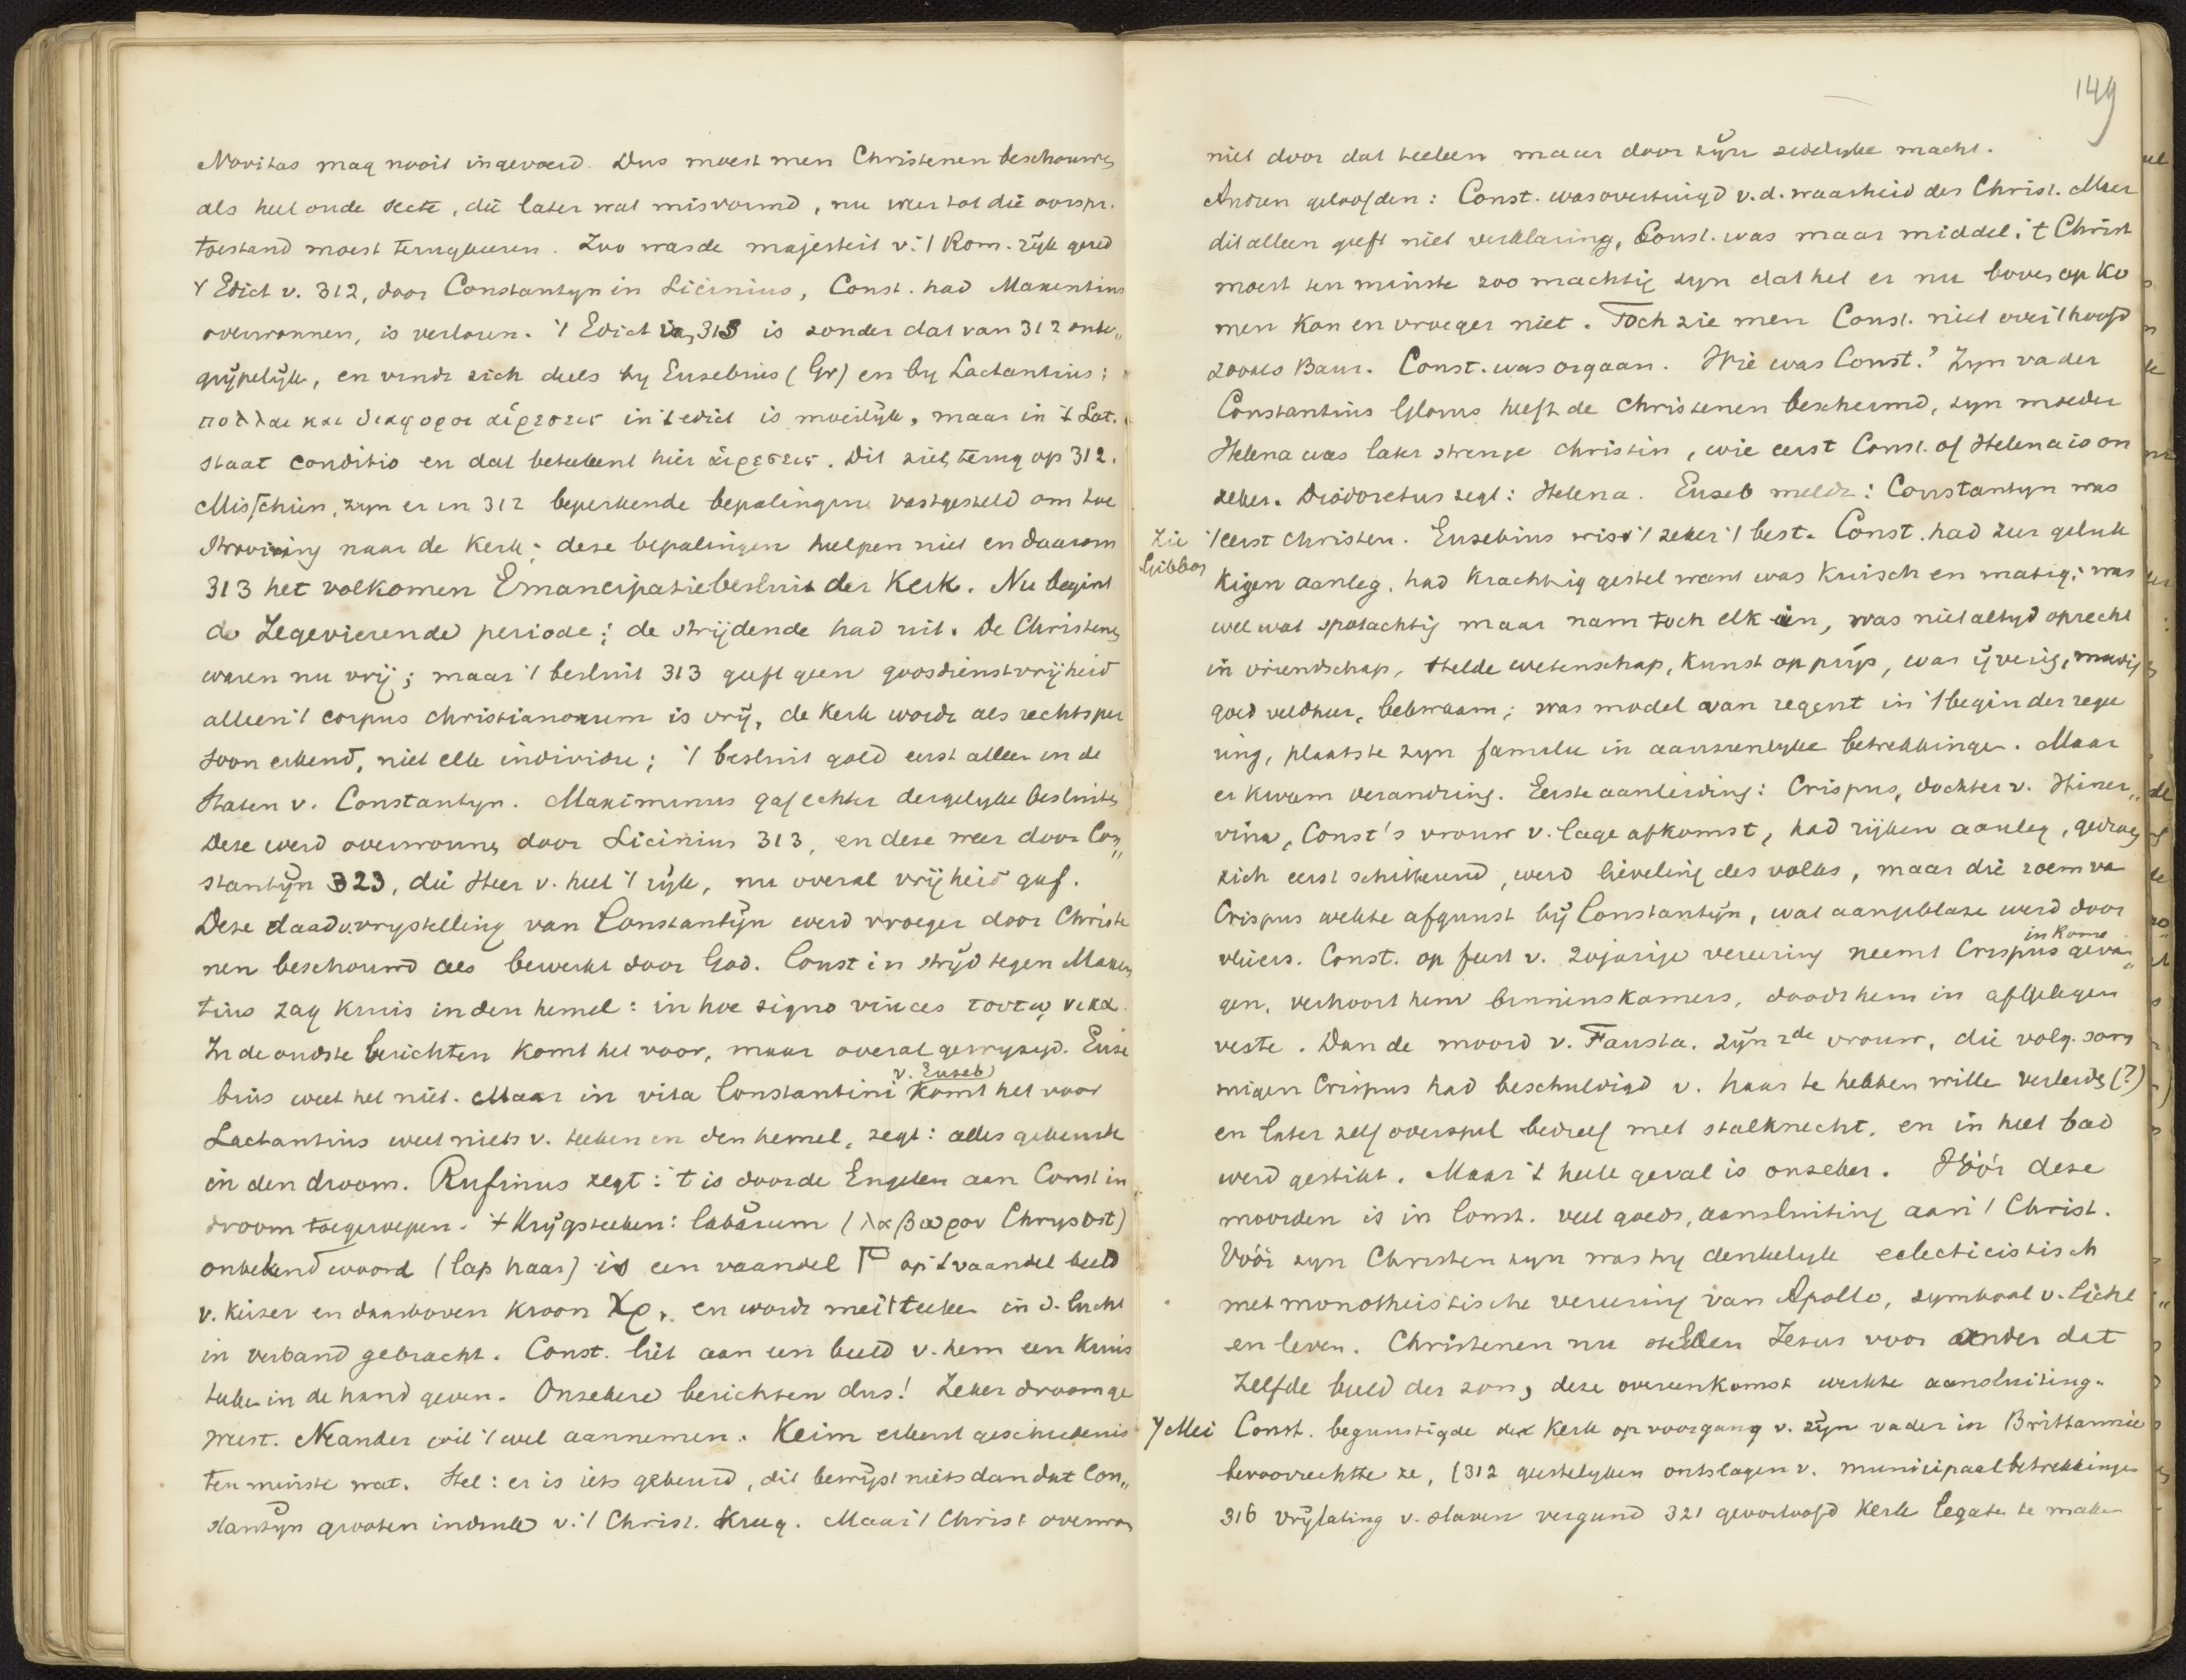 Novitas mag nooit ingevoerd. Dus moest men Christenen beschouwen
als heel oude secte, die later wat misvormd, nu weer tot die oorspr.
toestand moest terugkeeren. Zoo was de majesteit v. 't Rom. rijk gered
't Edict v. 312, door Constantyn en Licinius, Const. had Maxentius
overwonnen, is verloren. 't Edict van 313 is zonder dat van 312 onbe„
grijpelijk, en vindt zich deels by Eusebius (Gr) en by Lactantius;
πολλαι και διαφοροι αἱρεσεις in 't edict is moeilijk, maar in 't Lat.
staat conditio en dat beteekent hier αἱρεσεις. Dit ziet terug op 312.
Misschien, zyn er in 312 beperkende bepalingen vastgesteld om toe
strooming naar de Kerk; deze bepalingen hielpen niet en daarom
313 het volkomen Emancipatiebesluit der Kerk. Nu begint
de Zegevierende periode; de strijdende had uit. De Christenen
waren nu vrij; maar 't besluit 313 geeft geen godsdienstvrijheid
alleen 't corpus christianorum is vrij, de Kerk wordt als rechtsper
soon erkend, niet elk individu; 't besluit gold eerst alleen in de
Staten v. Constantyn. Maximinus gaf echter dergelyke besluiten
Deze werd overwonnen door Licinius 313, en deze weer door Con„
stantijn 323, die Heer v. heel 't rijk, nu overal vrijheid gaf.
Deze daad v. vrystelling van Constantijn werd vroeger door Christe
nen beschouwd als bewerkt door God. Const in strijd tegen Maxen
tius zag kruis in den hemel: in hoc signo vinces τουτω νικα.
In de oudste berichten komt het voor, maar overal gewyzigd. Euse
bius weet het niet. Maar in vita Constantini v. Euseb komt het voor
Lactantius weet niets v. teeken in den hemel, zegt: alles gebeurde
in den droom. Rufinus zegt: 't is door de Engelen aan Const in
droom toegeroepen. 't Krijgsteeken: labărum (λαβωρον Chrysost)
onbekend woord (lap haar) is een vaandel op 't vaandel beeld
v. Keizer en daarboven kroon Χρ. en wordt met 't teeken in d. lucht
in verband gebracht. Const. liet aan een beeld v. hem een Kruis
teeken in de hand geven. Onzekere berichten dus! Zeker droom ge
weest. Neander wil 't wel aannemen. Keim erkent geschiedenis
ten minste wat. Stel: er is iets gebeurd, dit bewijst niets dan dat Con„
stantijn grooten indruk v. 't Christ. kreeg. Maar 't Christ overwon
149
niet door dat teeken maar door zijn zedelyke macht.
Andren geloofden: Const. was overtuigd v. d. waarheid des Christ. Maar
dit alleen geeft niet verklaring, Const. was maar middel; 't Christ
moest ten minste zoo machtig zyn dat het er nu boven op ko
men kon en vroeger niet. Toch zie men Const. niet over 't hoofd
zooals Baur. Const. was orgaan. Wie was Const.? Zyn vader
Constantius Chlorus heeft de Christenen beschermd, zyn moeder
Helena was later strenge christin, wie eerst Const. of Helena is on
zeker. Theodoretus zegt: Helena. Euseb meldt: Constantyn was
't eerst Christen. Eusebius wist 't zeker 't best. Const. had zeer geluk
Zie
Gibbon
kigen aanleg, had krachtig gestel want was kuisch en matig; was
wel wat spotachtig maar nam toch elk in, was niet altyd oprecht
in vriendschap, stelde wetenschap, kunst op prijs, was ijverig, moedig
goed veldheer, bekwaam; was model van regent in 't begin der rege
ring, plaatste zyn familie in aanzienlyke betrekkingen. Maar
er kwam verandring. Eerste aanleiding: Crispus, dochter v. Miner„
vina, Const's vrouw v. lage afkomst, had rijken aanleg, gedroeg
zich eerst schitterend, werd lieveling des volks, maar die roem van
Crispus wekte afgunst bij Constantijn, wat aangeblazen werd door
vleiers. Const. op feest v. 20jarige vereering neemt Crispus in Rome gevan„
gen, verhoort hem binnenskamers, doodt hem in afgelegen
veste. Dan de moord v. Fausta. zijn 2de vrouw, die volg. som
migen Crispus had beschuldigd v. haar te hebben willen verleiden (?)
en later zelf overspel bedreef met stalknecht, en in heet bad
werd gestikt. Maar 't heele geval is onzeker. Vóór deze
moorden is in Const. veel goeds, aansluiting aan 't Christ.
Vóór zyn Christen zyn was hy denkelyk eclecticistisch
met monotheistische vereering van Apollo, symbool v. licht
en leven. Christenen nu stelden Jezus voor onder dat
zelfde beeld der zon, deze overeenkomst werkte aansluiting.
7 Mei Const. begunstigde de Kerk op voorgang v. zijn vader in Brittannie
bevoorrechtte ze, (312 geestelyken ontslagen v. municipaalbetrekkingen
316 vrijlating v. slaven vergund 321 geoorloofd Kerk legaten te maken